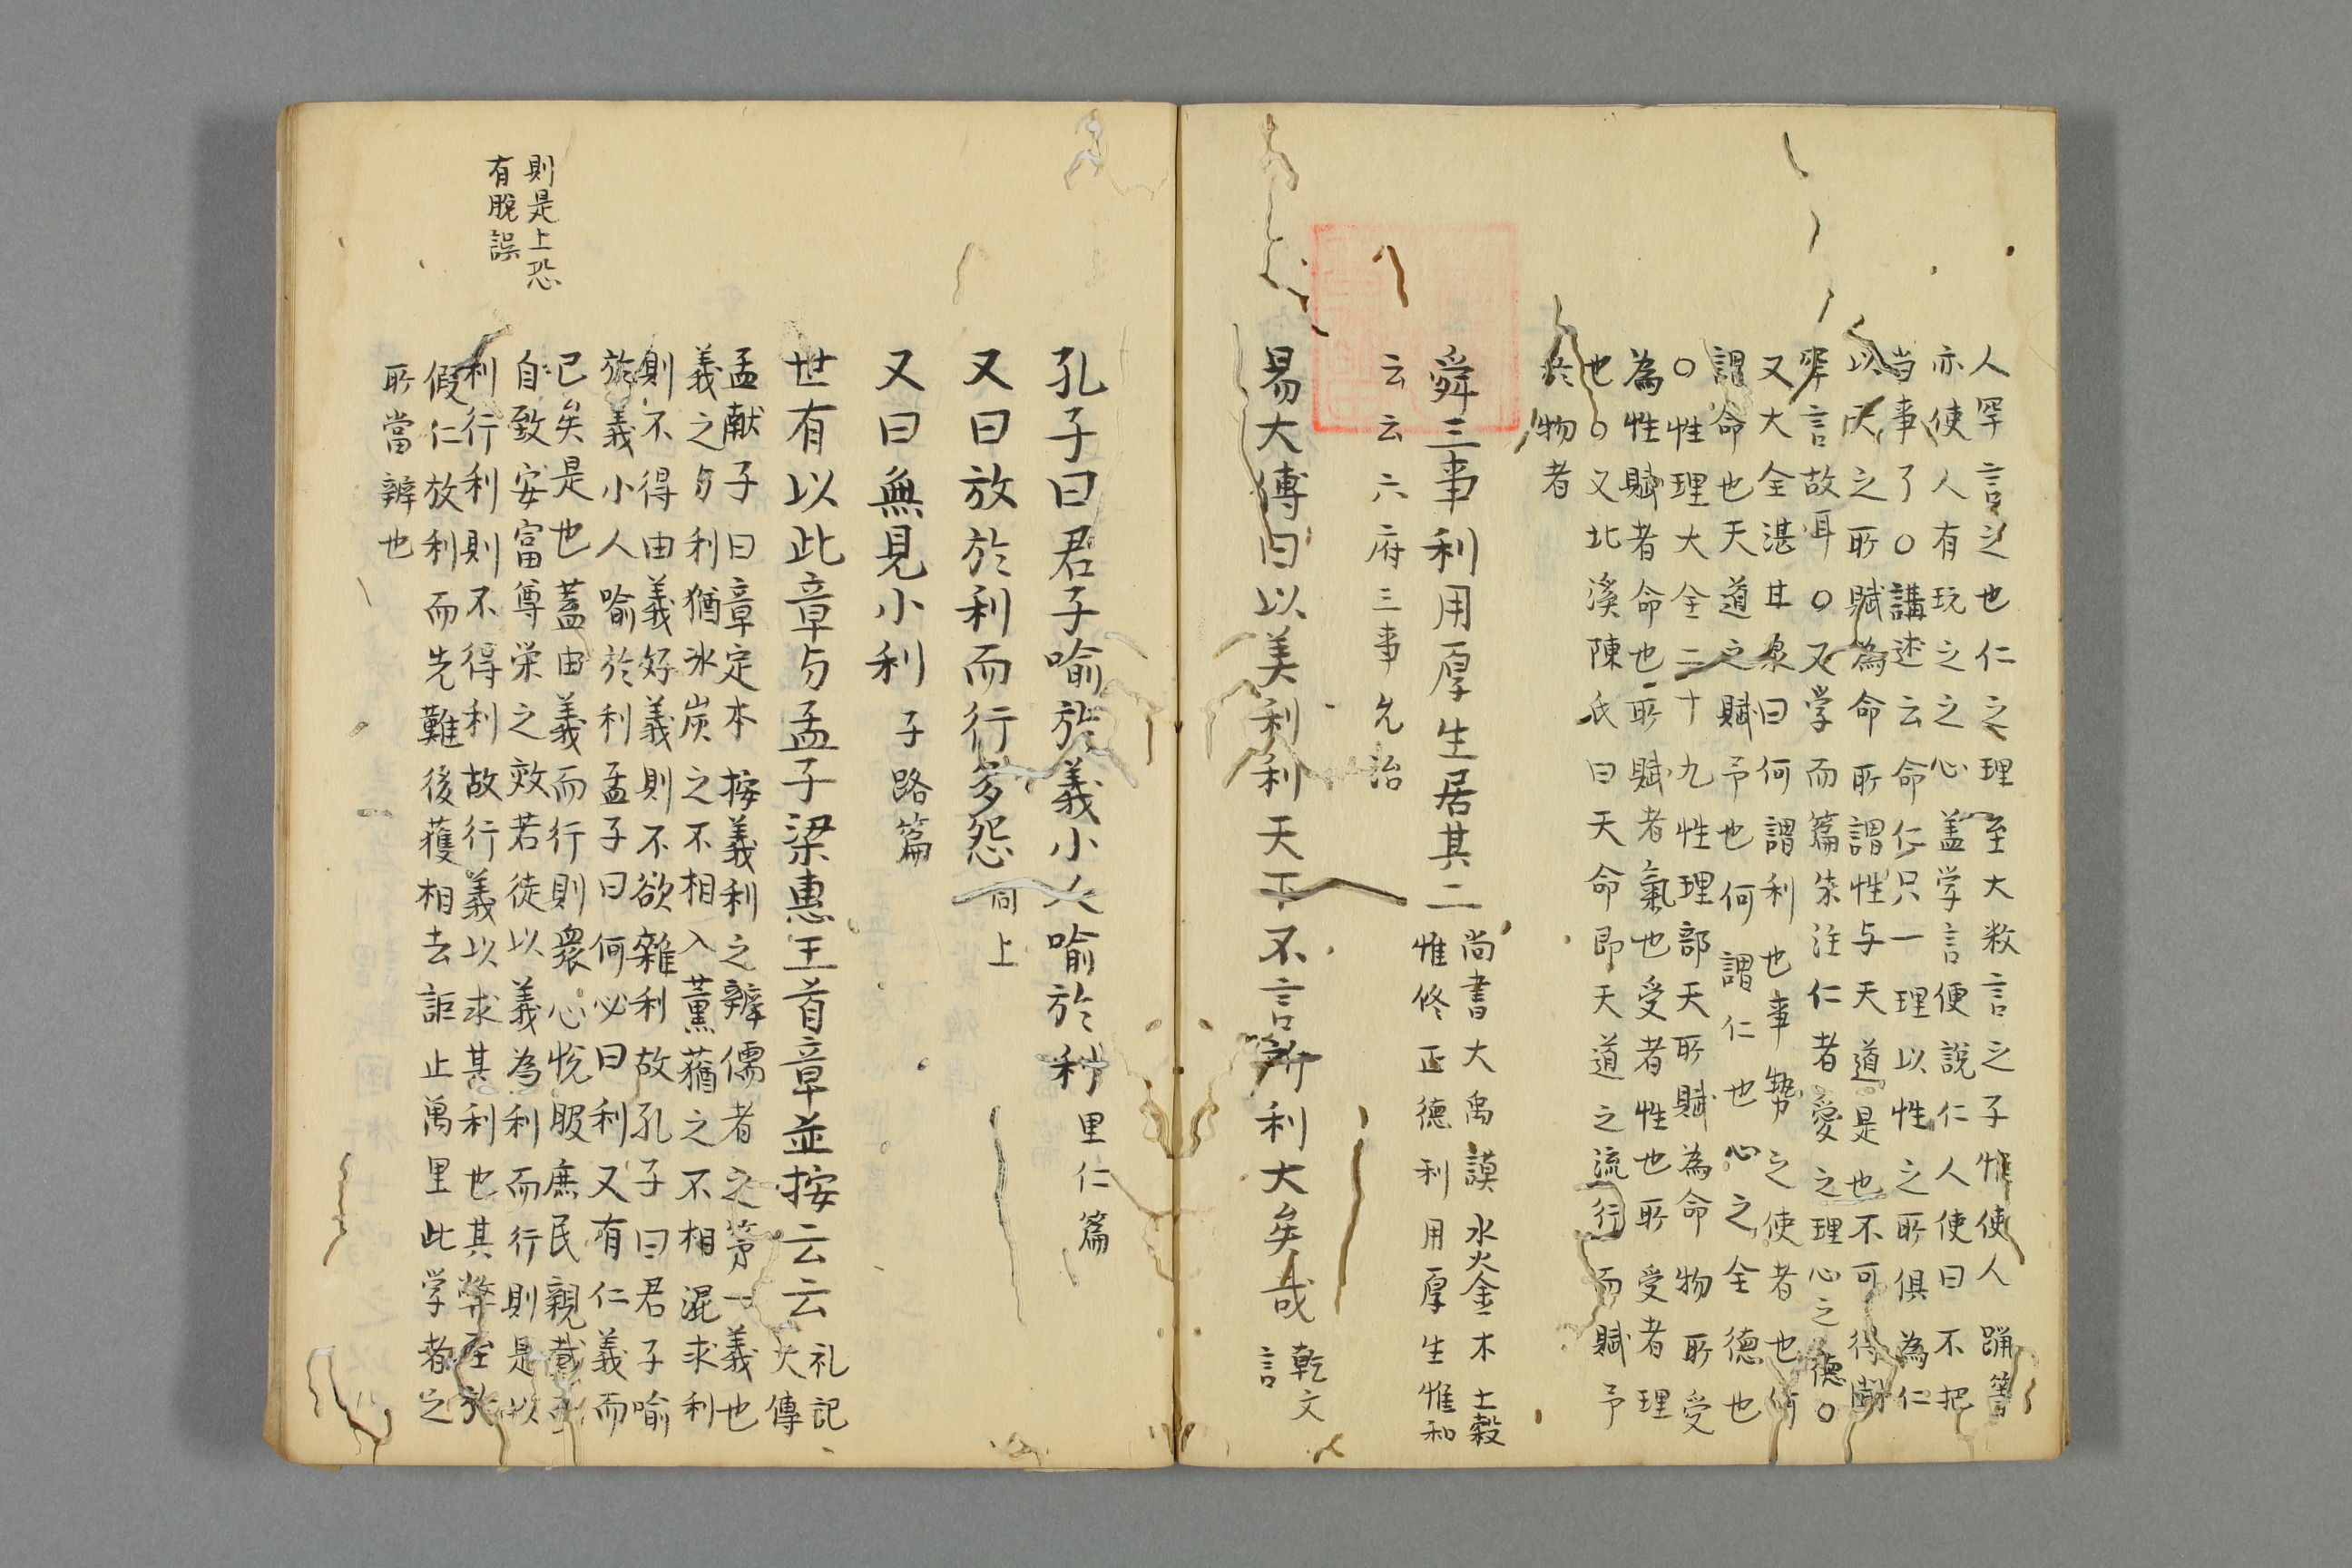 人罕言之也仁之理至大数言之子惟使人躐等
亦使人有玩之之心蓋学言便説仁人使曰不把
当事了○講述云命仁只一理以性之所俱為仁
以天之所賦為命所謂性与天道是也不可得聞
罕言故耳○又学而篇朱注仁者愛之理心之德○
又大全湛甘泉曰何謂利也事勢之使者也何
謂命也天道之賦予也何謂仁也心之全德也
○性理大全二十九性理部天所賦為命物所受
為性賦者命也所賦者氣也受者性也所受者理
也○又北溪陳氏曰天命即天道之流行而賦予
於物者
舜三事利用厚生居其二
尚書大禹謨 水火金木土穀
惟修正德利用厚生惟和
云云六府三事允治
易大傳曰以美利利天下不言所利大矣哉
乾文
言
孔子曰君子喻於義小人喻於利 里仁篇
又曰放於利而行多怨 同上
又曰無見小利 子路篇
世有以此章与孟子梁惠王首章並按云云
礼記
大傳
孟献子曰章定本 按義利之辨儒者之第一義也
義之与利猶氷炭之不相入薫蕕之不相混求利
則不得由義好義則不欲雜利故孔子曰君子喻
於義小人喻於利孟子曰何必曰利又有仁義而
已矣是也蓋由義而行則衆心悦服庶民親戴
自致安富尊栄之效若徒以義為利而行則是以
利行利則不得利故行義以求其利也其弊至於
假仁放利而先難後獲相去詎止萬里此学者之
所當辨也
則是上恐
有脱誤